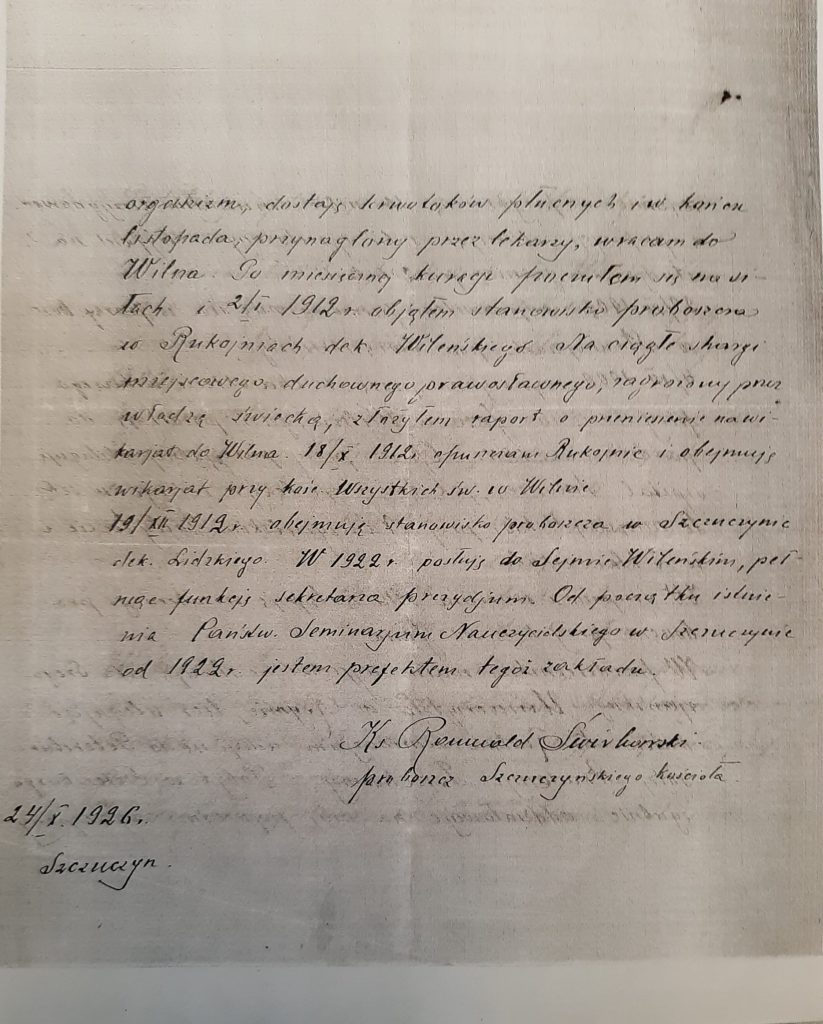 organizm, dostaję krwotoków płucnych i w końcu
listopada, przynaglony przez lekarzy, wracam do
Wilna. Po miesięcznej kuracji poczułem się na si-
łach i 2/I 1912 r. objąłem stanowisko proboszcza
w Rukojniach dek. Wileńskiego. Na ciągłe skargi
miejscowego duchownego prawosławnego, zagrożony przez
władzę świecką, złożyłem raport o przeniesienie na wi-
karjat do Wilna. 18/X 1912 r. opuszczam Rukojnie i obejmuję
wikarjat przy kośc. Wszystkich św. w Wilnie.
19/XII 1912 r. obejmuję stanowisko proboszcza w Szczuczynie
dek. Lidzkiego. W 1922 r. posłuję do Sejmie Wileńskim, peł-
niąc funkcję sekretarza prezydjum. Od początku istnie-
nia Państw. Seminarjum Nauczycielskiego w Szczuczynie
od 1922 r. jestem prefektem tegoż zakładu.
Ks. Romuald Świrkowski
proboszcz Szczuczyńskiego kościoła.
24/X. 1926 r.
Szczuczyn.